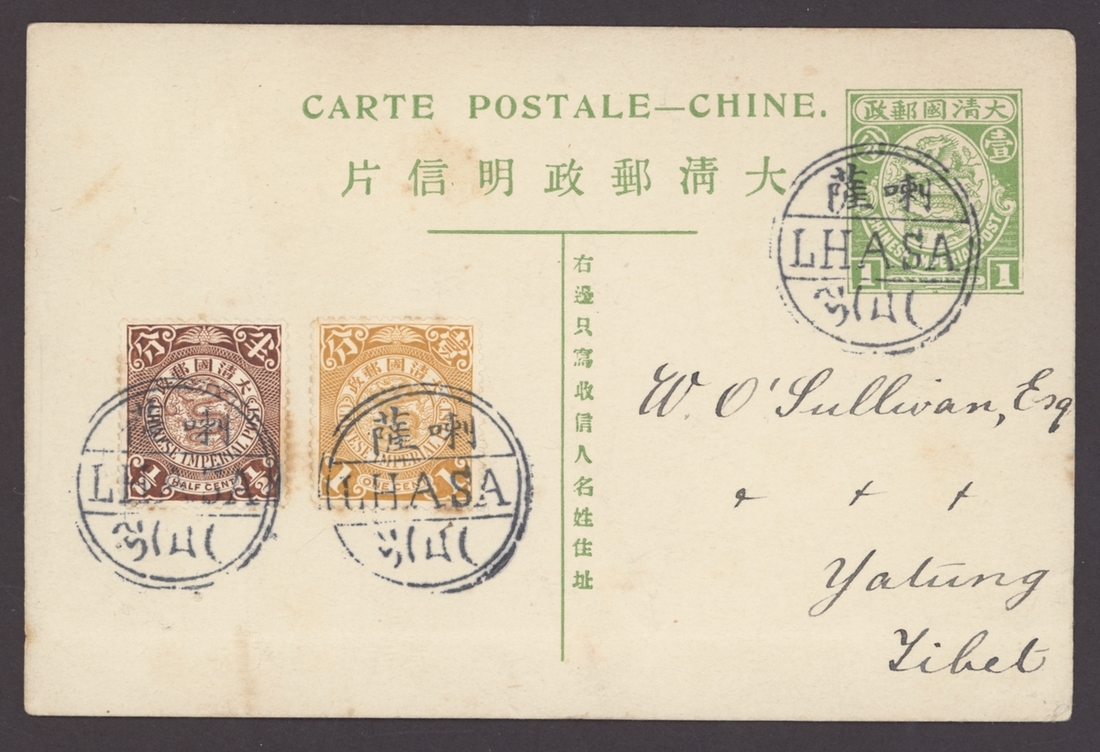 CARTE POSTALE—CHINE.
大清郵政明信片
大清國郵政
壹分
CHINESE IMPERIAL POST
1 1
喇薩
LHASA
右邊只寫收信人名姓住址
W. O'Sullivan, Esq
Yatung
Tibet
半分
大清國郵政
CHINESE IMPERIAL POST
½ HALF CENT ½
喇
LHASA
壹分
大清國郵政
CHINESE IMPERIAL POST
1 ONE CENT 1
喇薩
LHASA